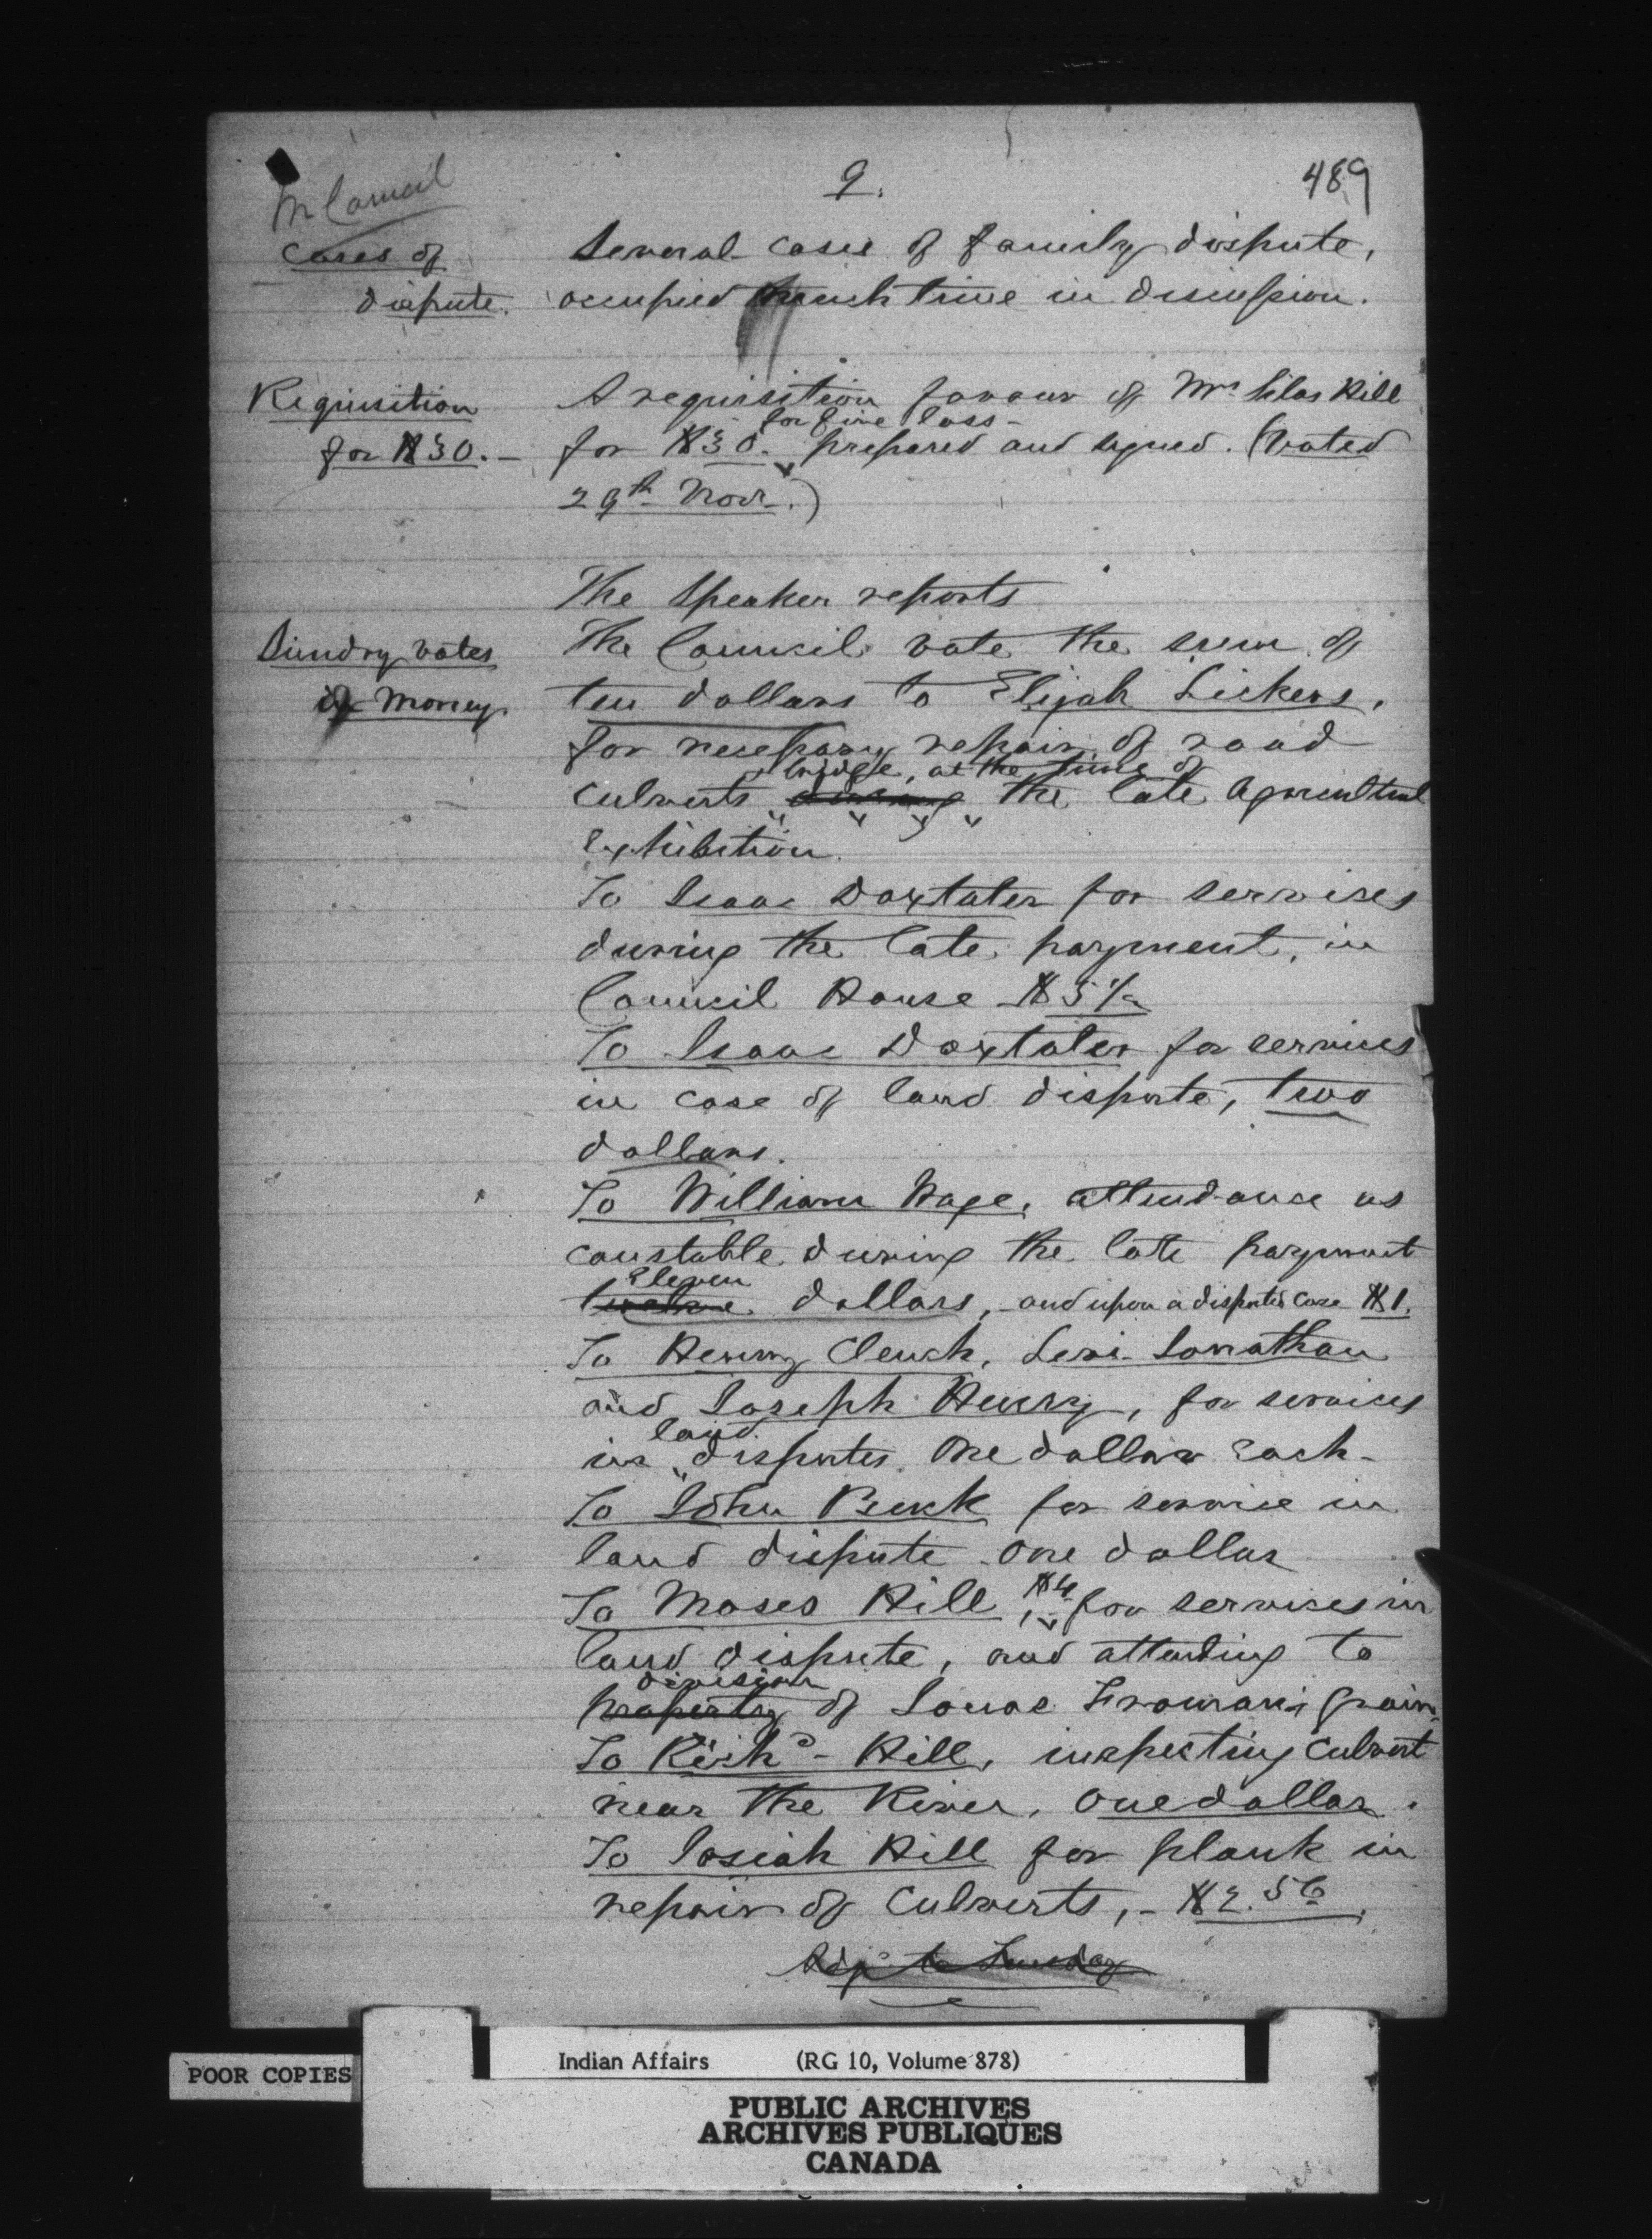 In Council
9.
489
Cases of
dispute.
Several cases of family dispute,
occupied much time in discussion.
Requisition
for $30.-
A requisition favour of Mrs Silas Hill
for fire loss-
for $30. prepared and signed. (Voted
29th Novr.)
The Speaker reports
Sundry votes
of Money.
The Council vote the sum of
ten dollars to Elijah Lickers,
for necessary repair of road
bridge, at the time of
culverts during the late Agricultural
exhibition.
To Isaac Doxtater for services
during the late payment, in
Council House $5
To Isaac Doxtater for services
in case of land dispute, two
dollars.
To William Wage, attendance as
constable during the late payment
Eleven
twelve dollars, - and upon a disputed case $1.
To Henry Clench, Levi Jonathan
and Joseph Henry, for services
land
in disputes One dollar each-
To John Buck for service in
land dispute One dollar
To Moses Hill, $4 for services in
land dispute, and attending to
division
property of Louae Froman's grain.
To Richd- Hill, inspecting culvert
near the River, One dollar.
To Josiah Hill for plank in
repair of culverts, - $2.56.
Adjd to Tuesday
POOR COPIES
Indian Affairs (RG 10, Volume 878)
PUBLIC ARCHIVES
ARCHIVES PUBLIQUES
CANADA